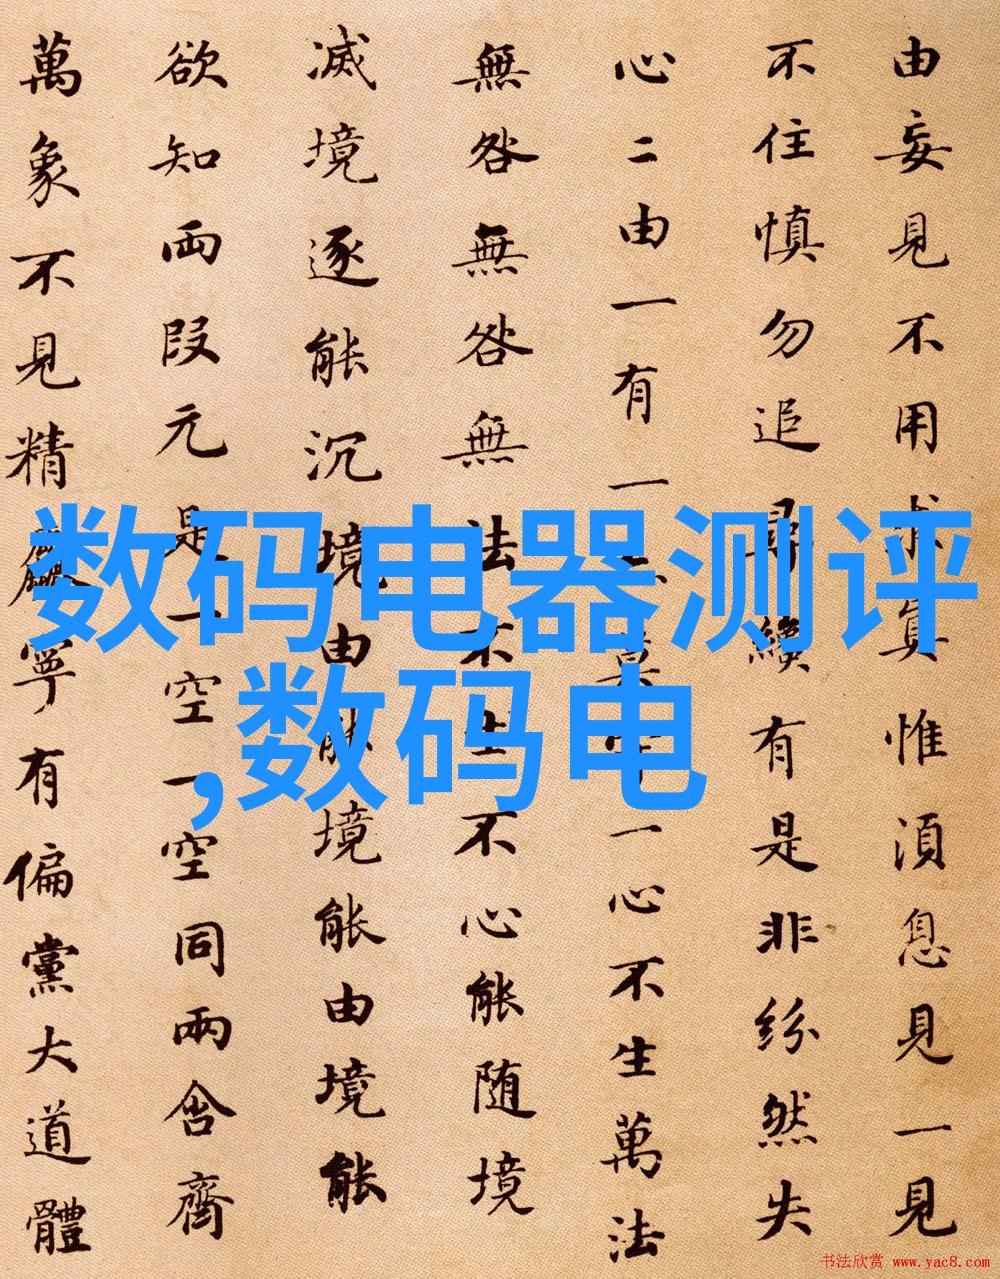 由妄見不用求真惟須息見一見
不住慎勿追尋纔有是非紛然失
心二由一有一莫守一心不生萬法
無咎無咎無法不生不心能随境
滅境逐能沉境由能境能由境能
欲知兩段元是一空一空同兩含齊
萬象不見精麁寧有偏黨大道體
数码电器测评
,数码电
书法欣赏 www.yac8.com